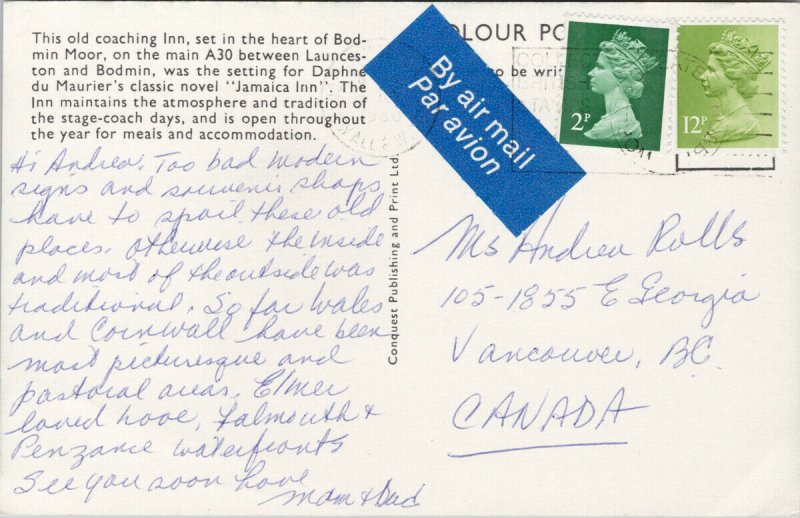 This old coaching Inn, set in the heart of Bod-
min Moor, on the main A30 between Launces-
ton and Bodmin, was the setting for Daphne
du Maurier's classic novel "Jamaica Inn". The
Inn maintains the atmosphere and tradition of
the stage-coach days, and is open throughout
the year for meals and accommodation.
Hi Andrea! Too bad modern
signs and souvenir shops
have to spoil these old
places. Otherwise the inside
and most of the outside was
traditional. So far Wales
and Cornwall have been
most picturesque and
pastoral areas. Elmer
loved hove, Falmouth &
Penzance waterfronts
See you soon love
Mom & Dad
Conquest Publishing and Print Ltd.
OLOUR PO
to be writ
By air mail
Par avion
2P
12P
Ms Andrea Rolls
105-1855 E Georgia
Vancouver, BC
CANADA